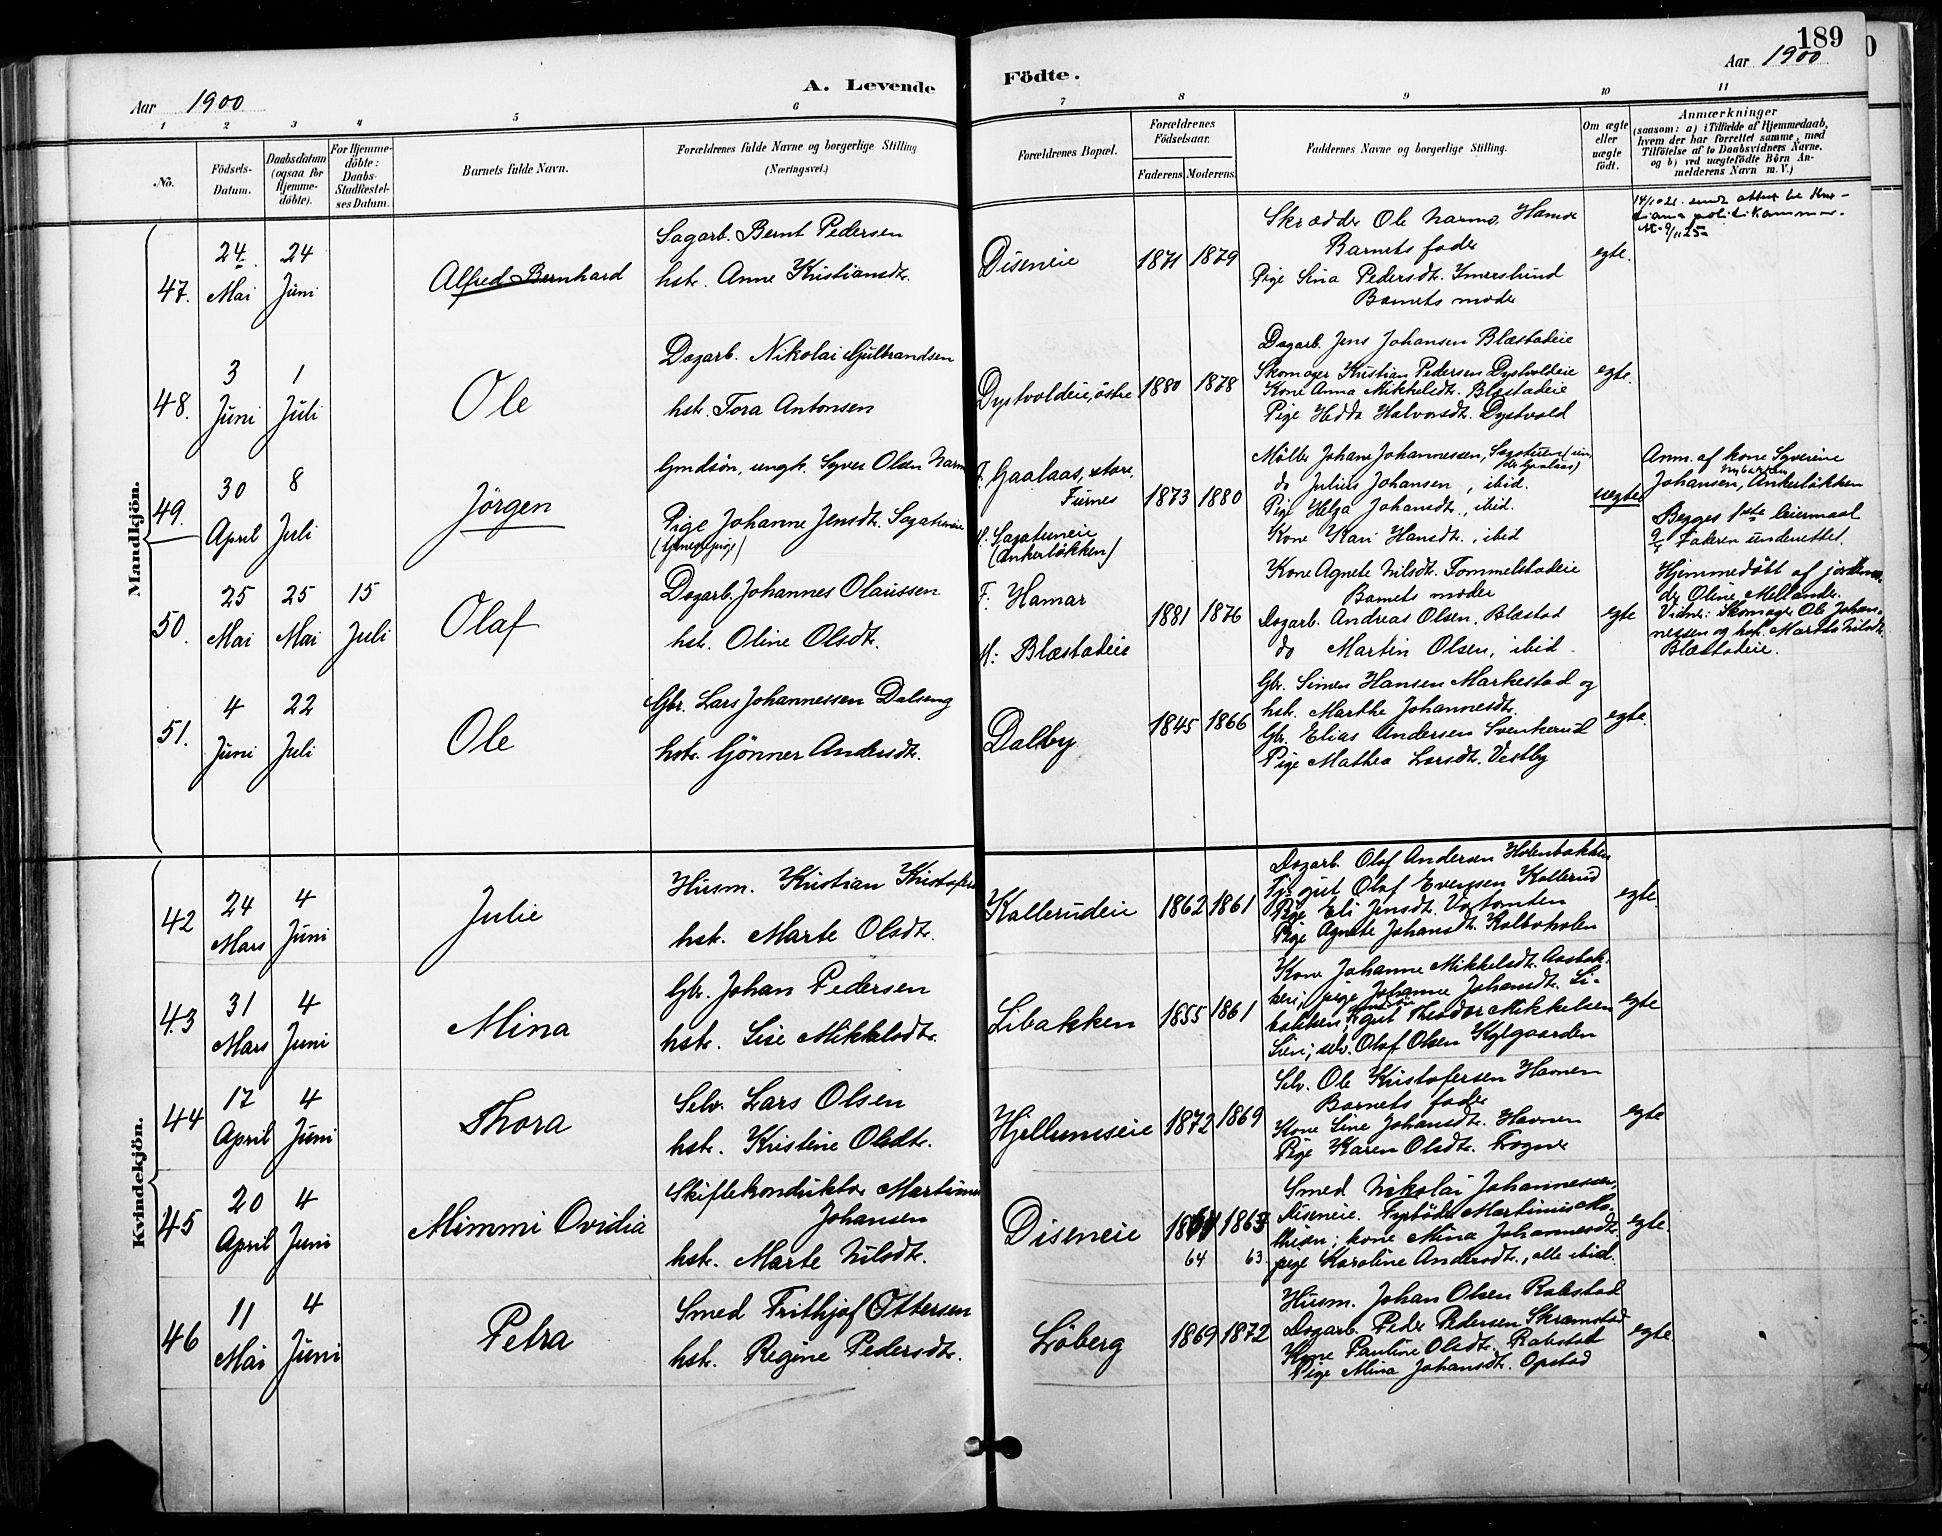 189
Aar 1900
A. Levende Födte.
Aar 1900
1 2 3 4 5 6 7 8 9 10 11
No.
Födsels-
Datum.
Daabsdatum
(ogsaa for
Hjemme-
döbte).
For Hjemme-
döbte:
Daabs-
Stadfæstel-
ses Datum.
Barnets fulde Navn.
Forældrenes fulde Navne og borgerlige Stilling
(Næringsvei.)
Forældrenes Bopæl.
Forældrenes
Födselsaar.
Faderens. Moderens.
Faddernes Navne og borgerlige Stilling.
Om ægte
eller
uægte
født.
Anmærkninger
(saasom: a) i Tilfælde af Hjemmedaab,
hvem der har forrettet samme, med
Tilföielse af to Daabsvidners Navne,
og b) ved uægtefödte Börn An-
melderens Navn m. V.)
Mandkjön.
47.
24. Mai
24 Juni
Alfred Bernhard
Sagarb. Bernt Pedersen
hstr. Anne Kristiansdtr.
Diseneie
1871 1879
Skrædder Ole Narmo, Hamar
Barnets fader
Pige Sina Pedersdtr. Imerslund
Barnets moder
egte.
48.
3 Juni
1 Juli
Ole
Dagarb. Nikolai Gulbrandsen
hstr. Tora Antonsen
Dystvoldeie, östre
1880 1878
Dagarb. Jens Johansen Blæstadeie
Skomager Kristian Pedersen Dystvoldeie
Kone Anna Mikkelsdtr. Blæstadeie
Pige Hedda Halvorsdtr. Dystvold
egte.
49.
30 April
8 Juli
Jörgen
Gmdsön, ungk. Syver Olsen
Pige Johanne Jensdtr. Sagatuneie
F. Gaalaas, store,
Furnes
M. Sagatuneie
(Ankerløkken)
1873 1880
Møller Johan Johannessen, Sagatuneie
do Julius Johansen, ibid.
Pige Helga Johansdtr., ibid.
Kone Kari Hansdtr., ibid
uegte
Anm. af kone Syverine
Johansen, Ankerløkken
Begges 1ste leiermaal
Faderen underrettet.
50.
25 Mai
25 Mai
15 Juli
Olaf
Dagarb. Johannes Olaussen
hstr. Oline Olsdtr.
F: Hamar
M: Blæstadeie
1881 1876
Kone Agnete Nilsdtr. Tommelstadeie
Barnets moder
Dagarb. Andreas Olsen, Blæstad
do Martin Olsen, ibid.
egte
Hjemmedöbt af jordemo-
der Oline Mellander.
Vidner: Skomager Ole Johan-
nessen og hstr. Marthe Nilsdtr.
Blæstadeie.
51.
4 Juni
22 Juli
Ole
Gbr. Lars Johannessen Dalseng
hstr. Gönner Andersdtr.
Dalby
1845 1866
Gbr. Simen Hansen Markestad og
hstr. Marthe Johannesdtr.
Gbr. Elias Andersen Svenkerud
Pige Mathea Larsdtr. Vestby
egte.
Kvindekjön.
42
24 Mars
4 Juni
Julie
Husm. Kristian Kristofers
hstr. Marte Olsdtr.
Kallerudeie
1862 1861
Dagarb. Olaf Andersen Holenbakken
Tj. gut Olaf Evensen Kallerud
Pige Eli Jensdtr.
Pige Agnete Johansdtr.
egte.
43
31 Mars
4 Juni
Mina
Gbr. Johan Pedersen
hstr. Lise Mikkelsdtr.
Libakken
1855 1861
Kone Johanne Mikkelsdtr. Aasbak-
ken; pige Johanne Johansdtr. Li-
bakken; gut Theodor Mikkelsen
Lien; selv. Olaf Olsen Kylgaarden
egte
44
17 April
4 Juni
Thora
Selv. Lars Olsen
hstr. Kristine Olsdtr.
Hjellumseie
1872 1869
Selv. Ole Kristofersen Hamen
Barnets fader
Kone Line Johansdtr. Hamen
Pige Karen Olsdtr. Fogner
egte
45
20 April
4 Juni
Mimmi Ovidia
Skiftekonduktør Martinus
Johansen
hstr. Marte Nilsdtr.
Diseneie
64 63
Smed Nikolai Johannessen,
Diseneie. Fyrbøder Martinius Ma-
thisen; kone Mina Johannesdtr.
pige Karoline Andersdtr., alle ibid.
egte.
46
11 Mai
4 Juni
Petra
Smed Frithjof Ottersen
hstr. Regine Pedersdtr.
Löberg
1869 1872
Husm. Johan Olsen Rabstad
Dagarb. Peder Pedersen Skramstad
Kone Pauline Olsdtr. Rabstad
Pige Mina Johansdtr. Opstad
egte